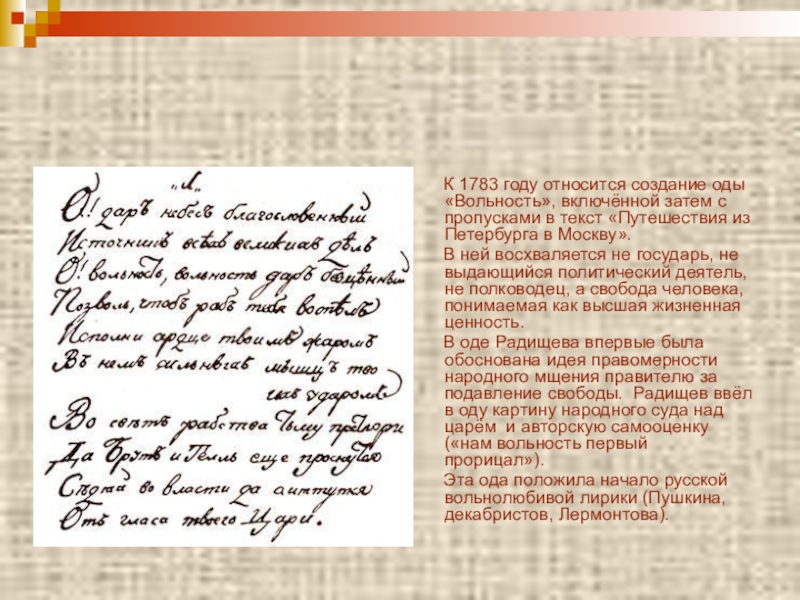 „1„
О! даръ небесъ благословенный
Источникъ всѣхъ великихъ дѣлъ
О! вольность, вольность даръ безцѣнный
Позволь, чтобъ рабъ тебя воспѣлъ
Исполни сердце твоимъ жаромъ
Въ немъ сильныхъ мышцъ тво
ихъ ударомъ
Во свѣтъ рабства тьму претвори
Да Брутъ и Телль еще проснутся
Сѣдяй во власти да смятутся
Отъ гласа твоего Цари.
К 1783 году относится создание оды
«Вольность», включённой затем с
пропусками в текст «Путешествия из
Петербурга в Москву».
В ней восхваляется не государь, не
выдающийся политический деятель,
не полководец, а свобода человека,
понимаемая как высшая жизненная
ценность.
В оде Радищева впервые была
обоснована идея правомерности
народного мщения правителю за
подавление свободы. Радищев ввёл
в оду картину народного суда над
царём и авторскую самооценку
(«нам вольность первый
прорицал»).
Эта ода положила начало русской
вольнолюбивой лирики (Пушкина,
декабристов, Лермонтова).